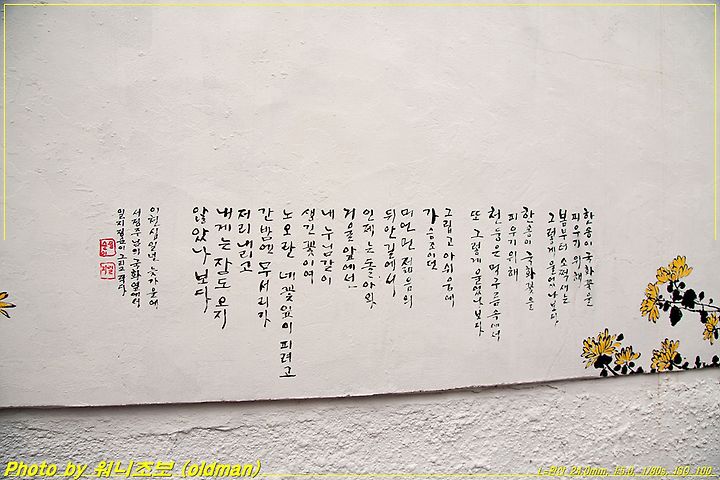 한송이 국화꽃을
피우기 위해
봄부터 소쩍새는
그렇게 울었나보다
한송이 국화꽃을
피우기 위해
천둥은 먹구름속에서
또 그렇게 울었나보다
그립고 아쉬움에
가슴조이던
머언먼 젊음의
뒤안길에서
인제는 돌아와
거울앞에선
내 누님같이
생긴 꽃이여
노오란 네 꽃잎이 피려고
간밤엔 무서리가
저리 내리고
내게는 잠도 오지
않았나보다
이천십일년 늦가을에
서정주님의 국화옆에서
그리고 적다
Photo by (oldman)
24.0mm, f:5.0, 1/80s, ISO 100